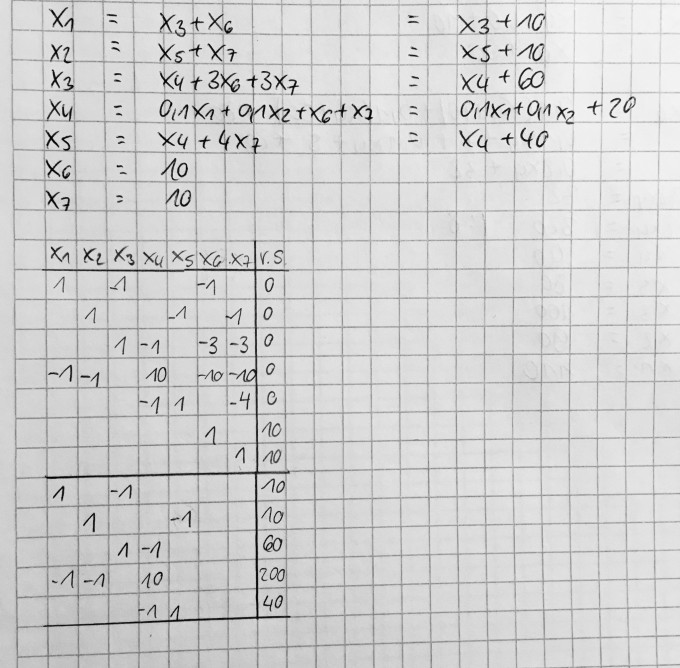 x1 = x3+x6 = x3+10
x2 = x5+x7 = x5+10
x3 = x4+3x6+3x7 = x4+60
x4 = 0,1x1+0,1x2+x6+x7 = 0,1x1+0,1x2+20
x5 = x4+4x7 = x4+40
x6 = 10
x7 = 10
x1 x2 x3 x4 x5 x6 x7 r.S.
1 -1 -1 0
1 -1 -1 0
1 -1 -3 -3 0
-1 -1 10 -10 -10 0
-1 1 -4 0
1 10
1 10
1 -1 10
1 -1 10
1 -1 60
-1 -1 10 200
-1 1 40